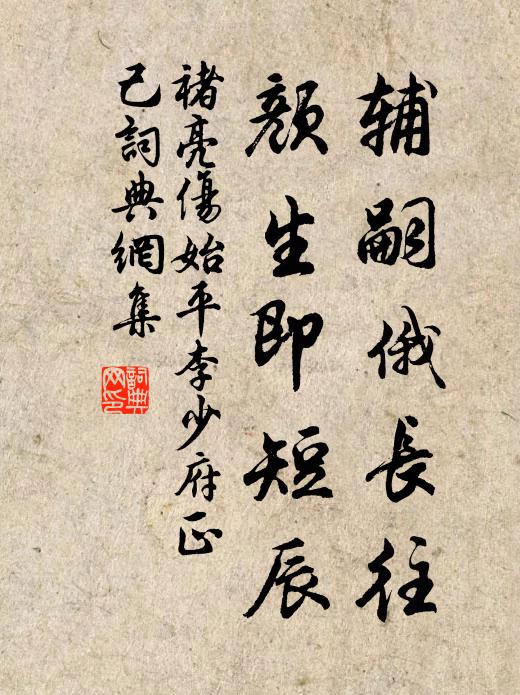 辅嗣俄長往
顏生即短辰
褚亮傷始平李少府正
己詞典網集
詞典
网印